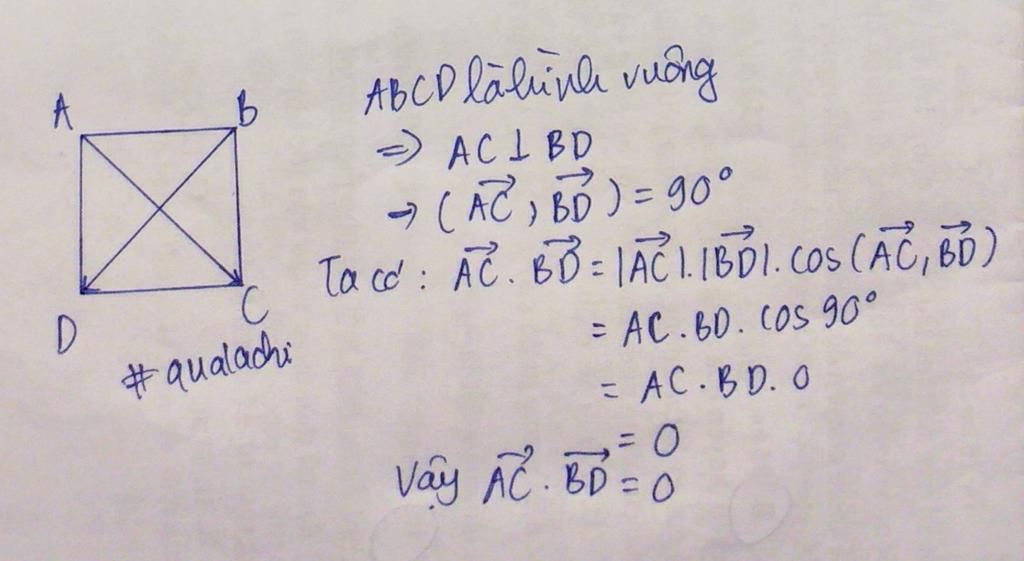 A B
D C
#qualachi
ABCD là hình vuông
=> AC ⊥ BD
→ (\overrightarrow{AC}, \overrightarrow{BD}) = 90°
Ta có : \overrightarrow{AC} . \overrightarrow{BD} = |\overrightarrow{AC}|.|\overrightarrow{BD}|. cos (\overrightarrow{AC}, \overrightarrow{BD})
= AC . BD . cos 90°
= AC . BD . 0
= 0
Vậy \overrightarrow{AC} . \overrightarrow{BD} = 0